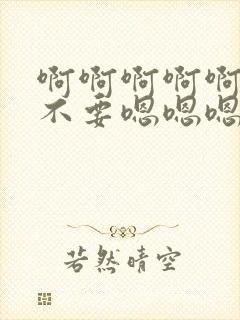 啊啊啊啊啊
不要嗯嗯嗯
若然晴空